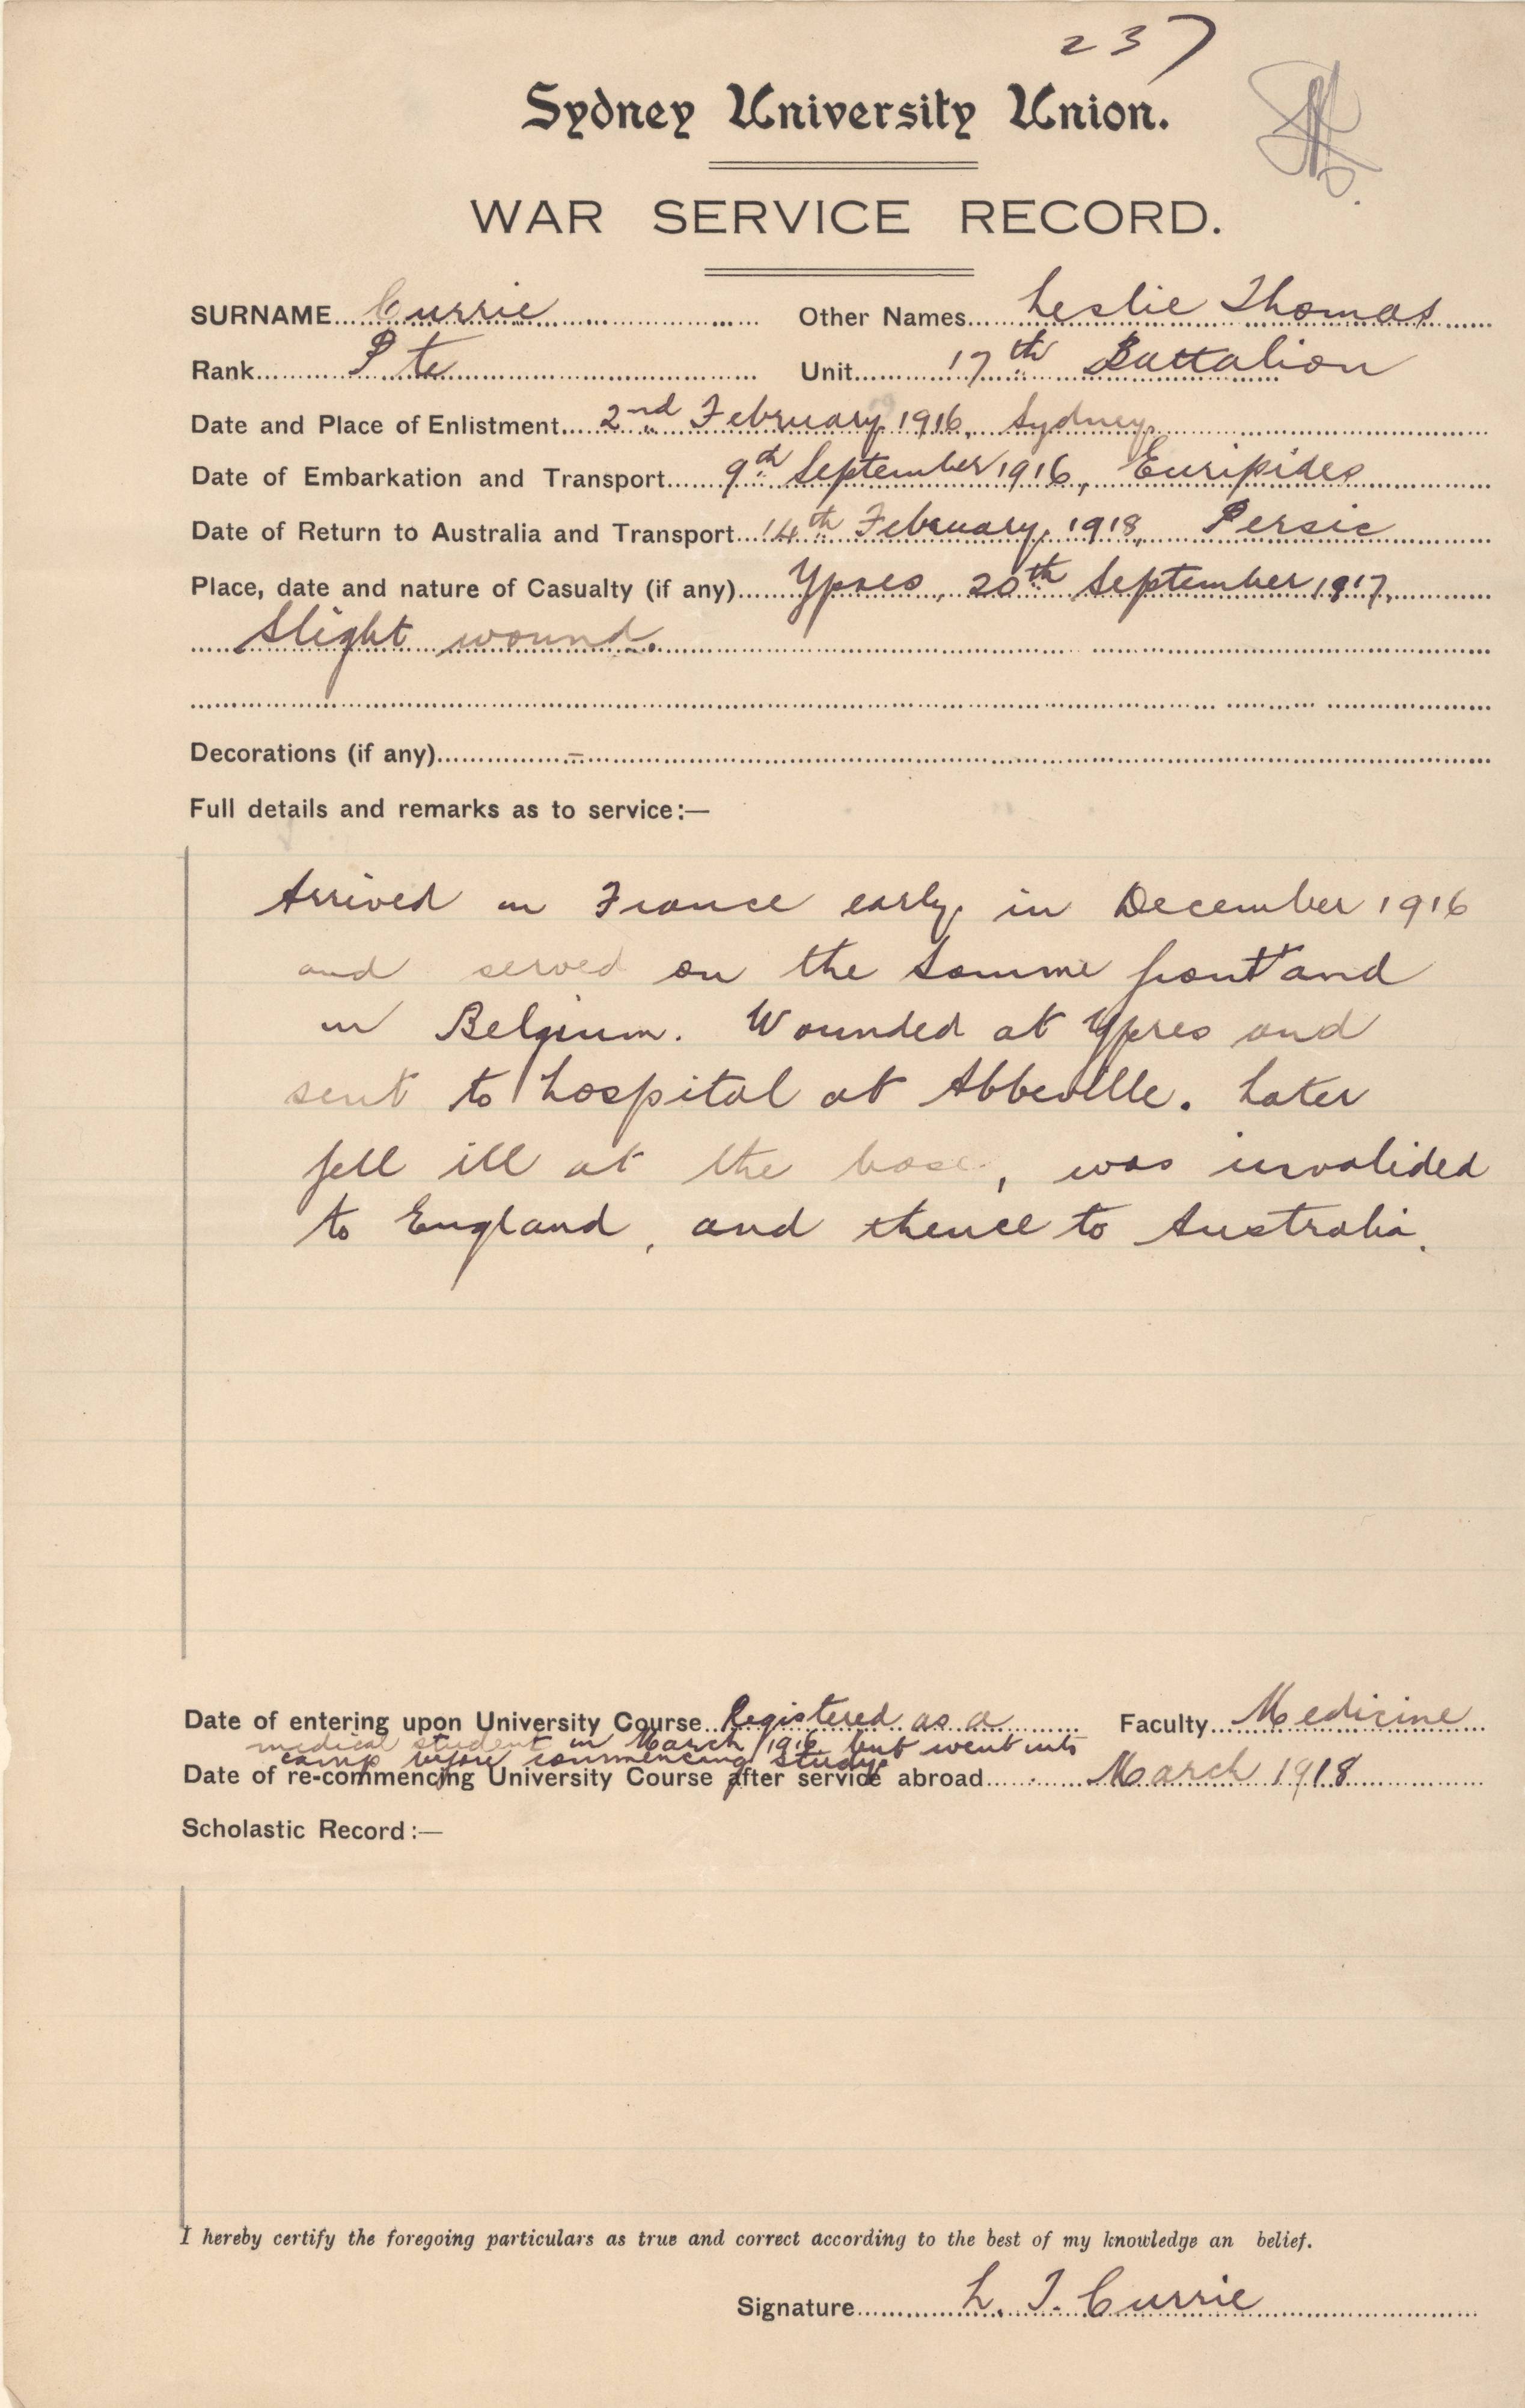 237
Sydney University Union.
WAR SERVICE RECORD.
SURNAME Currie Other Names Leslie Thomas
Rank Pte Unit 17th Battalion
Date and Place of Enlistment 2nd February 1916, Sydney.
Date of Embarkation and Transport 9th September 1916, Euripides
Date of Return to Australia and Transport 14th February, 1918, Persic
Place, date and nature of Casualty (if any) Ypres, 20th September 1917,
Slight wound.
Decorations (if any) –
Full details and remarks as to service:—
Arrived in France early in December 1916
and served on the Somme front and
in Belgium. Wounded at Ypres and
sent to hospital at Abbeville. Later
fell ill at the base, was invalided
to England, and thence to Australia.
Date of entering upon University Course Registered as a Faculty Medicine
medical student in March 1916 but went into
camp before commencing study
Date of re-commencing University Course after service abroad March 1918
Scholastic Record:—
I hereby certify the foregoing particulars as true and correct according to the best of my knowledge an belief.
Signature L. T. Currie